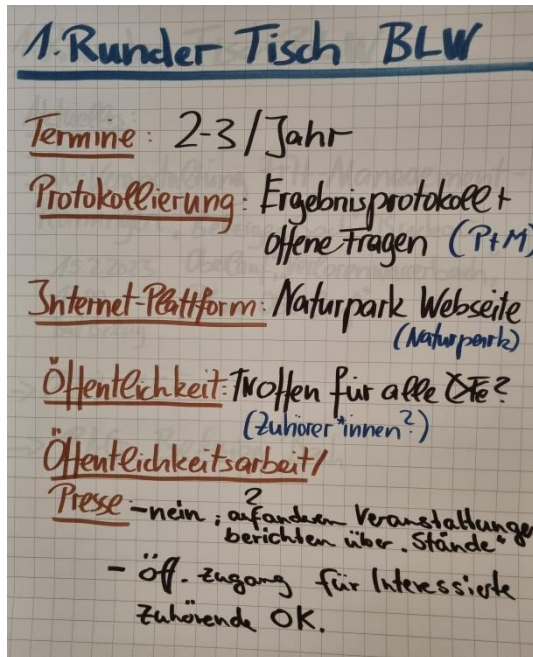 1. Runder Tisch BLW
Termine: 2-3/Jahr
Protokollierung: Ergebnisprotokoll +
offene Fragen (P+M)
Internet-Plattform: Naturpark Webseite
(Naturpark)
Öffentlichkeit: offen für alle
(Zuhörer*innen?)
Öffentlichkeitsarbeit/
?
Presse - nein; auf anderen Veranstaltunge
berichten über "Stände"
- öff. Zugang für Interessierte
Zuhörende OK.